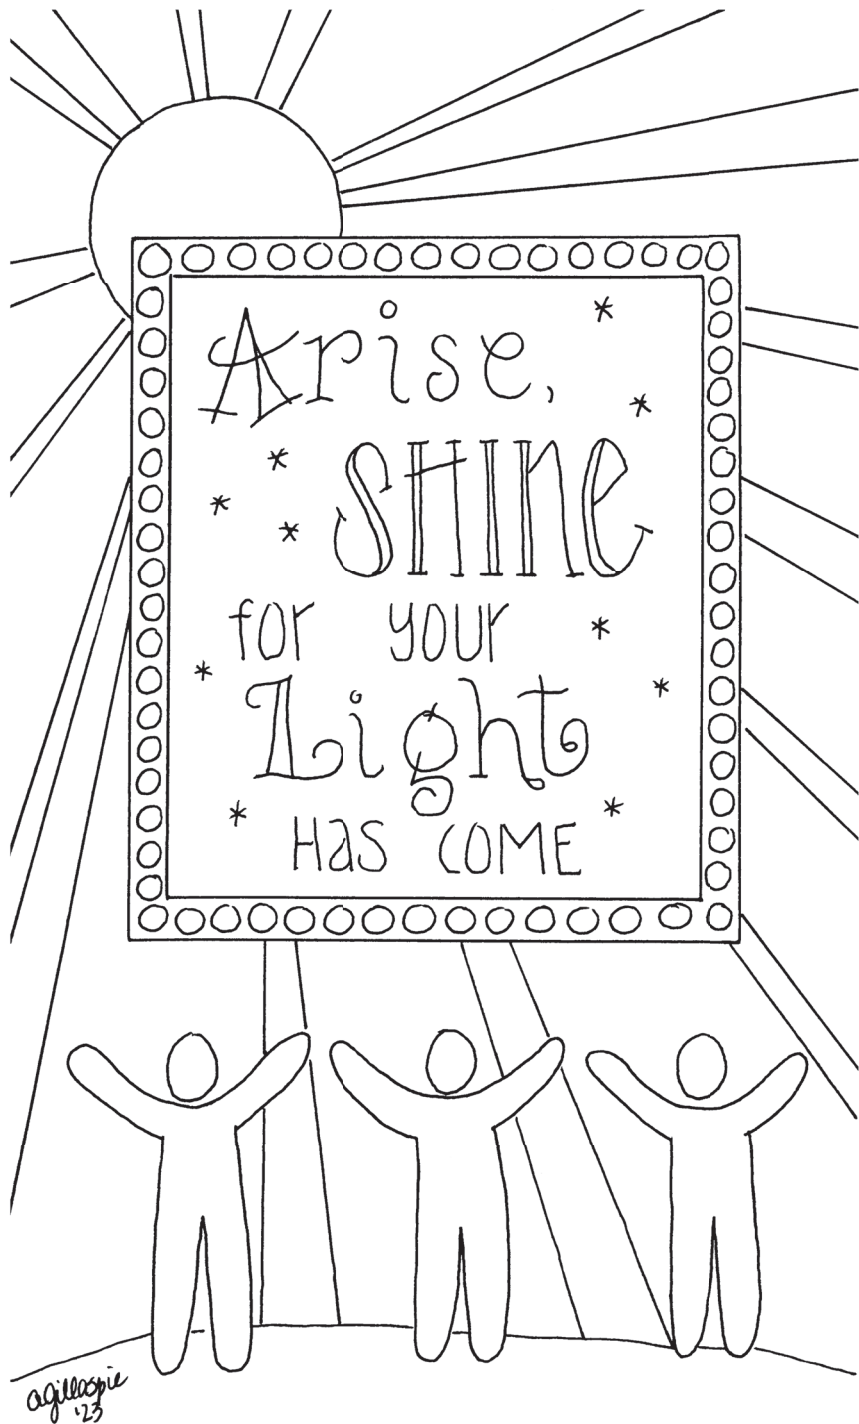 Arise,
SHINe
for your
Light
Has COME
agillaspie
'23